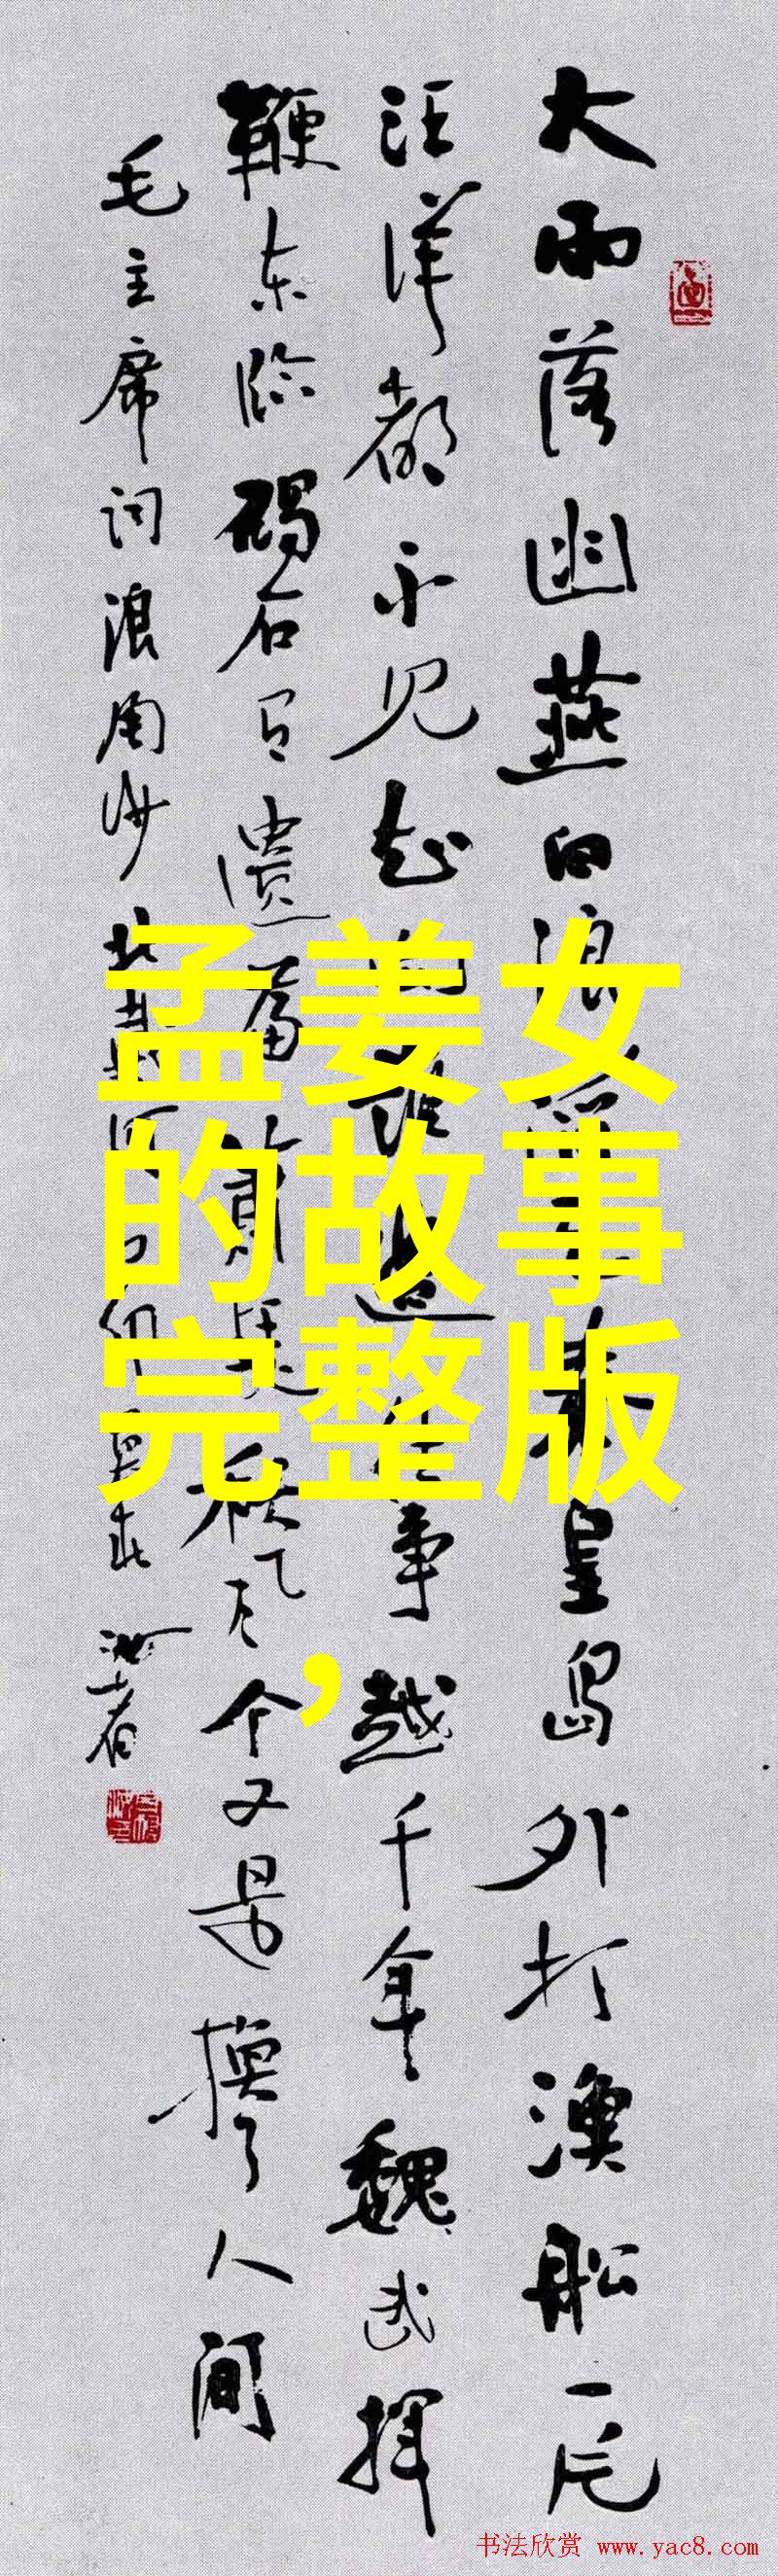 大雨落幽燕白浪滔天秦皇岛外打漁船一片
汪洋都不见知向谁边往事越千年魏武挥
鞭东临碣石有遗篇萧瑟秋风今又是换了人间
毛主席词浪淘沙北戴河
孟姜女
的故事
完整版
,
书法欣赏 www.yac8.com